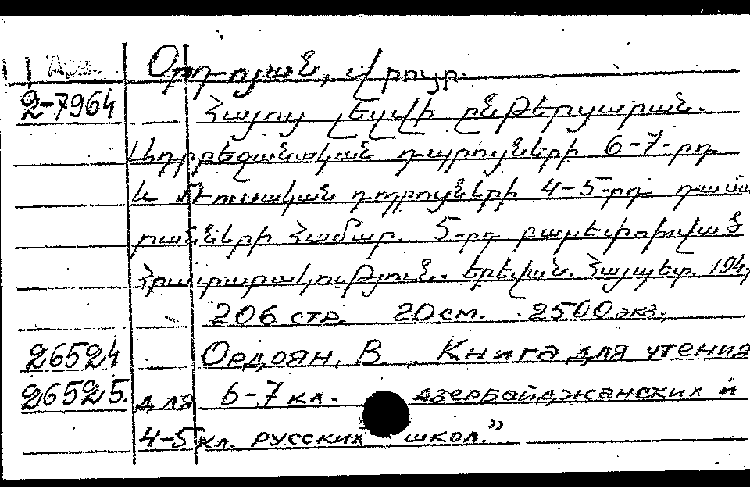 Арм. Օրդոյան, Վրույր.
2-7964 Հայոց լեզվի ընթերցարան.
Ադրբեջանական դպրոցների 6-7-րդ
և Ռուսական դպրոցների 4-5-րդ դասա
րանների համար. 5-րդ բարեփոխված
հրատարակություն. Երևան. Հայպետ. 194
206 стр. 20 см. 2500 экз.
26524 Ордоян, В. Книга для чтения
26525. для 6-7 кл. азербайджанских и
4-5 кл. русских школ."